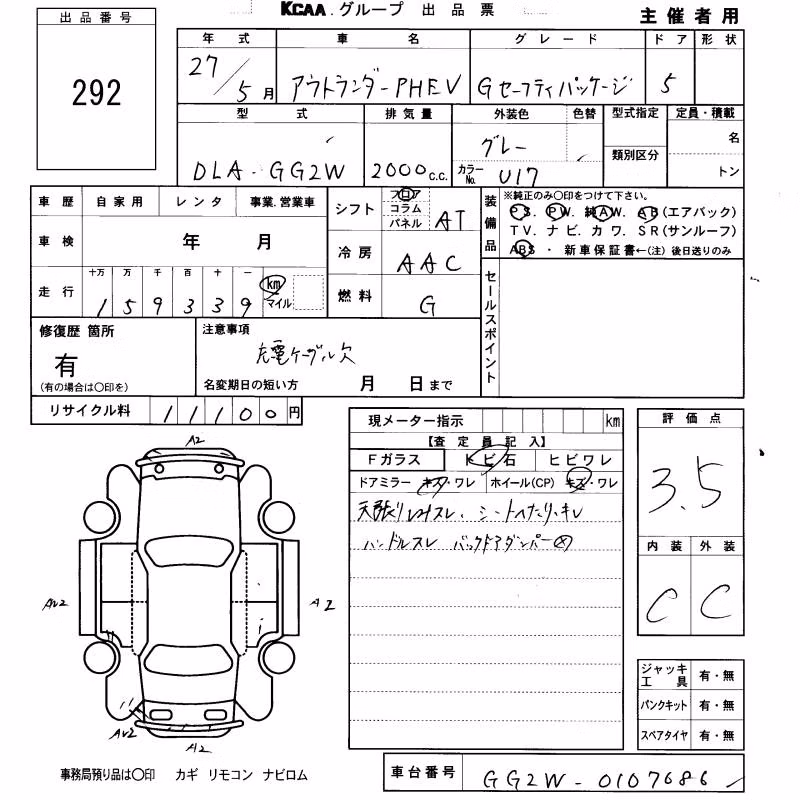 KCAA.グループ 出品票 主催者用
出品番号
292
年式 車名 グレード ドア 形状
27/5月 アウトランダーPHEV Gセーフティパッケージ 5
型式 排気量 外装色 色替 型式指定 定員・積載
DLA-GG2W 2000c.c. グレー 類別区分 名
カラーNo. U17 トン
車歴 自家用 レンタ 事業.営業車
車検 年 月
走行 十万 万 千 百 十 一 km
159339 マイル
シフト フロア コラム パネル AT
冷房 AAC
燃料 G
装備品 ※純正のみ○印をつけて下さい。
PS. PW. 純AW. AB(エアバック)
TV. ナビ. カワ. SR(サンルーフ)
ABS ・ 新車保証書←(注) 後日送りのみ
セールスポイント
修復歴 箇所
有
(有の場合は○印を)
注意事項
充電ケーブル欠
名変期日の短い方 月 日まで
リサイクル料 11100円
現メーター指示 km
【査定員記入】
Fガラス トビ石 ヒビワレ
ドアミラー キズ・ワレ ホイール(CP) キズ・ワレ
シートヘたり、キレ
ハンドルスレ バックドアダンパー
評価点
3.5
内装 外装
C C
A2
AU2 A2
AU2
A12
ジャッキ工具 有・無
パンクキット 有・無
スペアタイヤ 有・無
事務局預り品は○印 カギ リモコン ナビロム
車台番号 GG2W-0107686